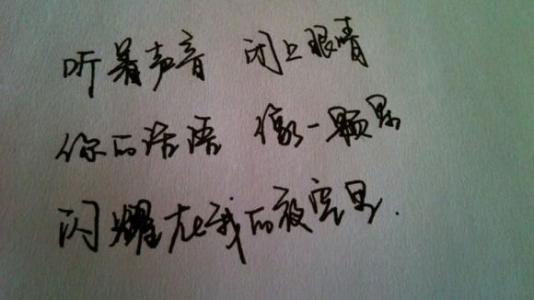 听着声音 闭上眼睛
你的话语 像一颗星
闪耀在我的夜空里.